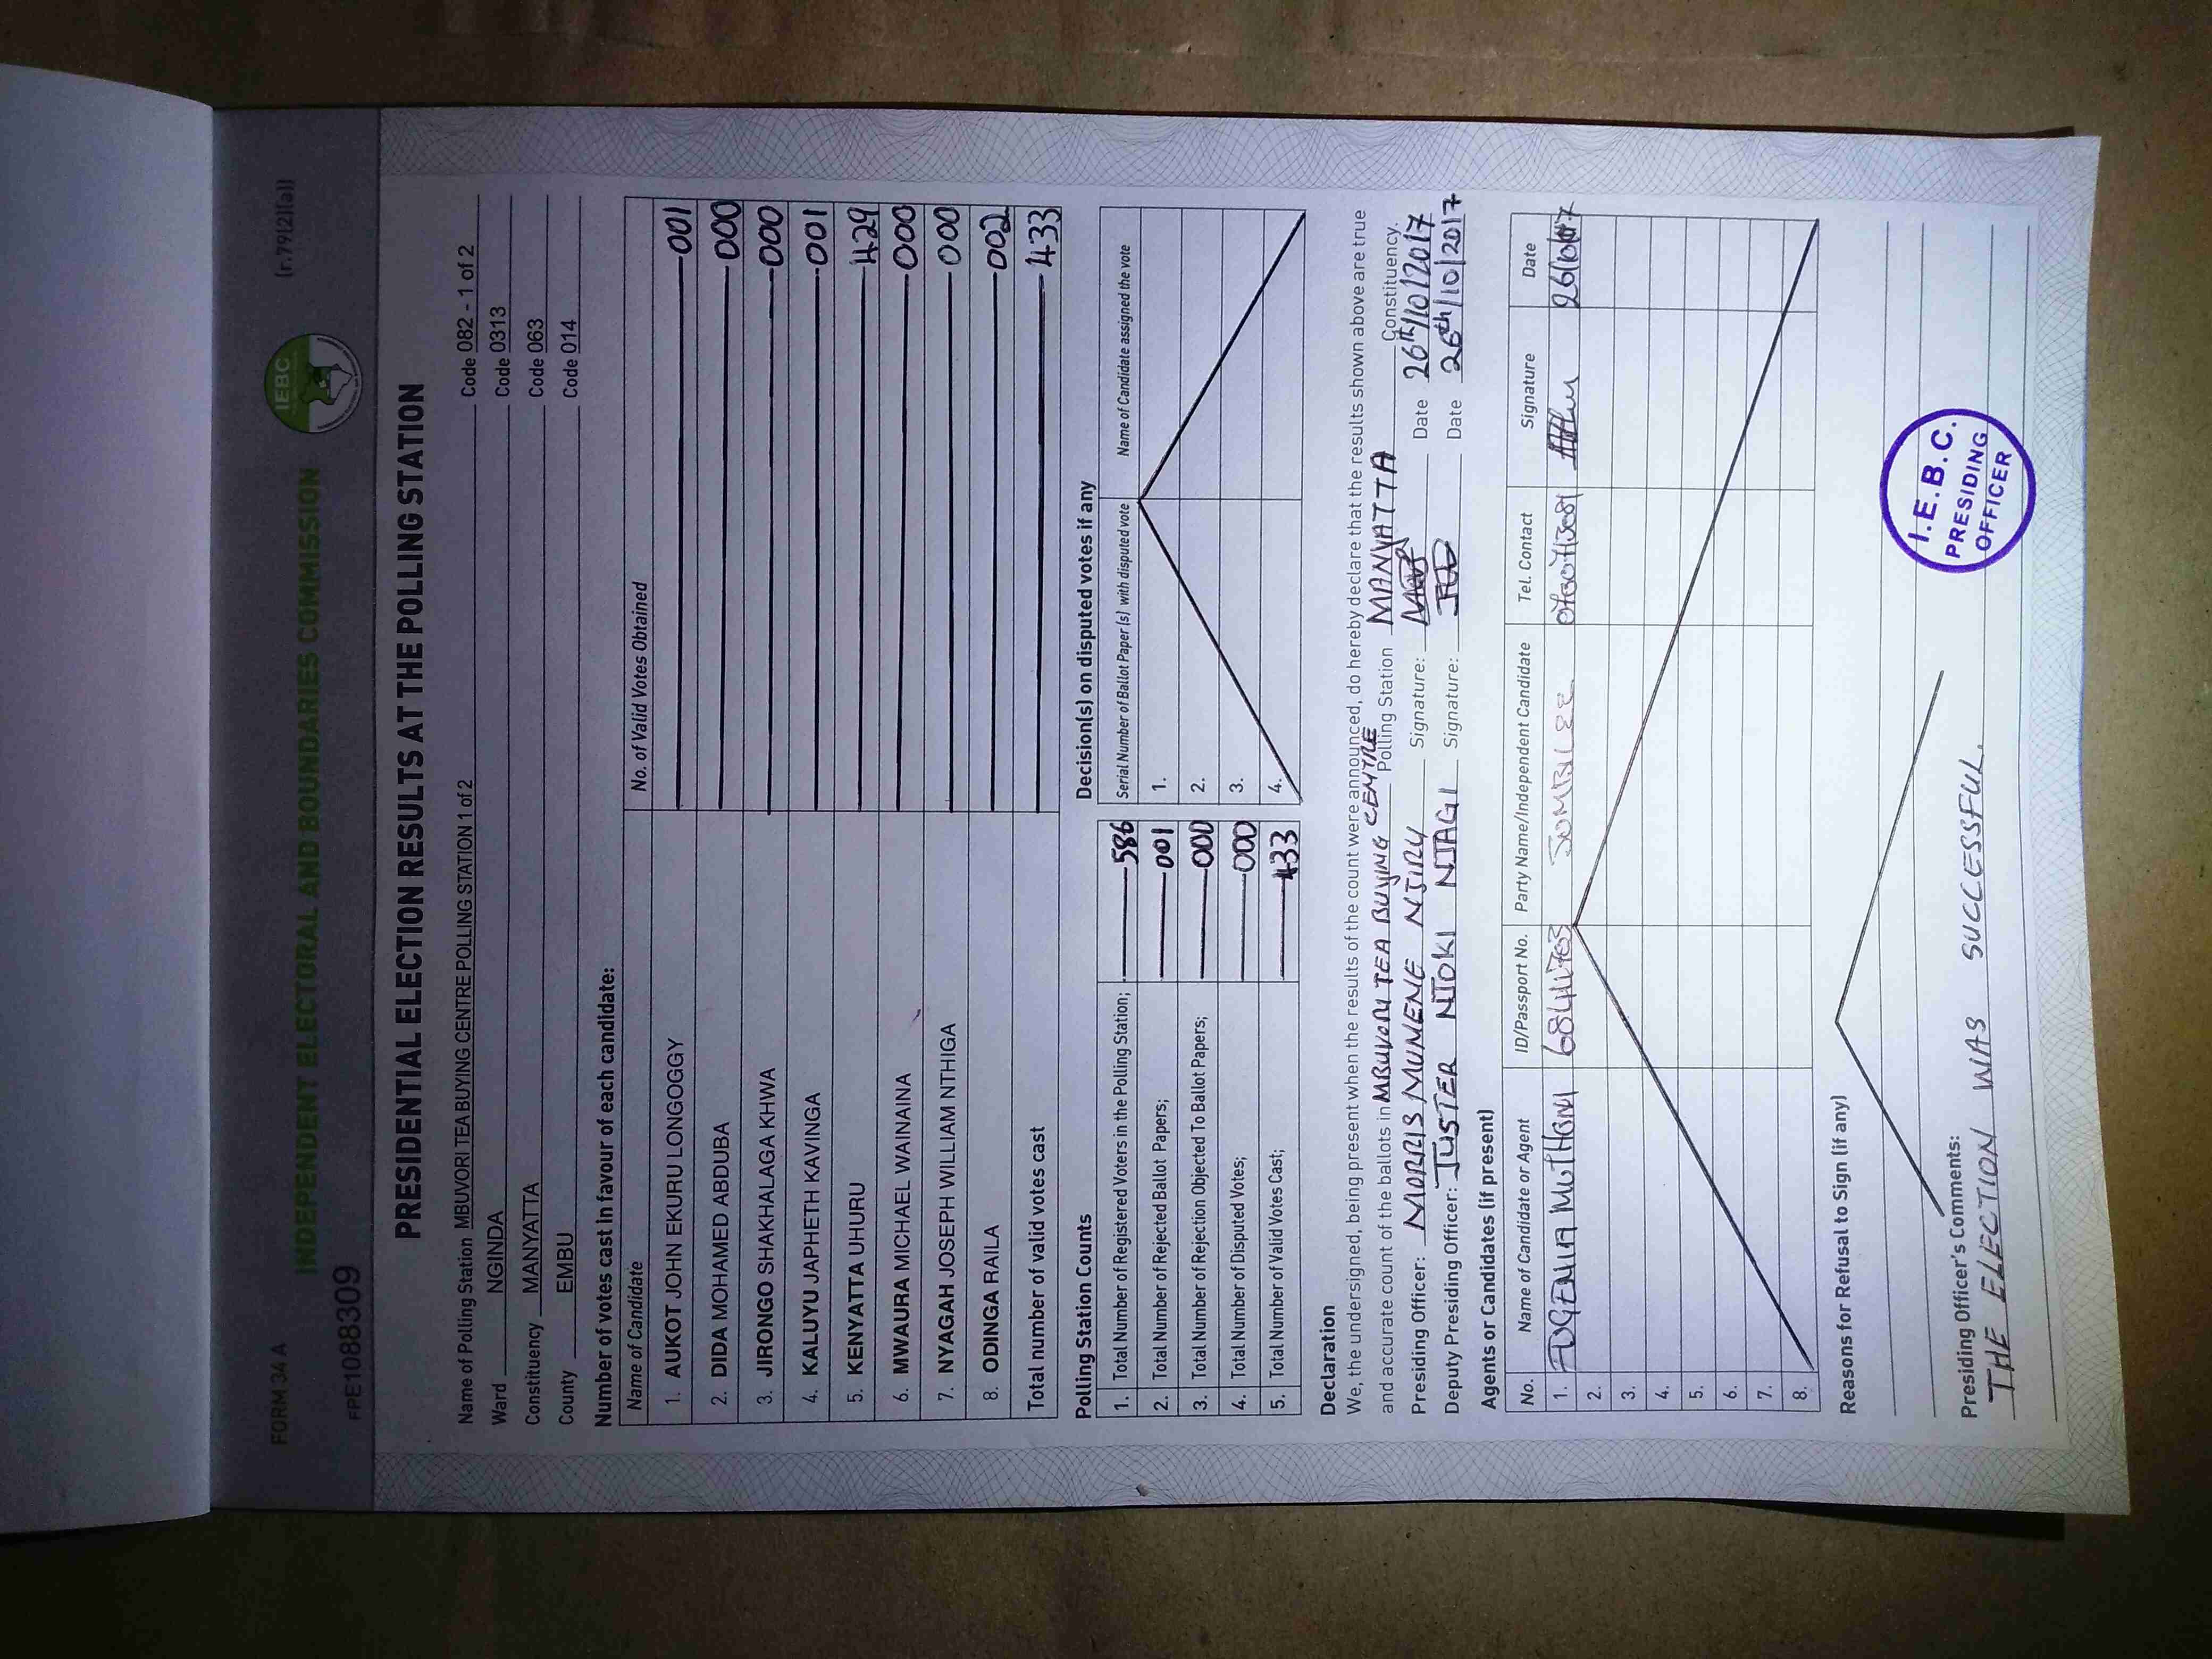 FORM 34 A
(r.79(2)(a))
INDEPENDENT ELECTORAL AND BOUNDARIES COMMISSION
IEBC
FPE1088309
PRESIDENTIAL ELECTION RESULTS AT THE POLLING STATION
Name of Polling Station MBUVORI TEA BUYING CENTRE POLLING STATION 1 of 2 Code 082 - 1 of 2
Ward NGINDA Code 0313
Constituency MANYATTA Code 063
County EMBU Code 014
Number of votes cast in favour of each candidate:
Name of Candidate No. of Valid Votes Obtained
1. AUKOT JOHN EKURU LONGOGGY 001
2. DIDA MOHAMED ABDUBA 000
3. JIRONGO SHAKHALAGA KHWA 000
4. KALUYU JAPHETH KAVINGA 001
5. KENYATTA UHURU 429
6. MWAURA MICHAEL WAINAINA 000
7. NYAGAH JOSEPH WILLIAM NTHIGA 000
8. ODINGA RAILA 002
Total number of valid votes cast 433
Polling Station Counts
1. Total Number of Registered Voters in the Polling Station; 586
2. Total Number of Rejected Ballot Papers; 001
3. Total Number of Rejection Objected To Ballot Papers; 000
4. Total Number of Disputed Votes; 000
5. Total Number of Valid Votes Cast; 433
Decision(s) on disputed votes if any
Serial Number of Ballot Paper (s) with disputed vote Name of Candidate assigned the vote
1.
2.
3.
4.
Declaration
We, the undersigned, being present when the results of the count were announced, do hereby declare that the results shown above are true
and accurate count of the ballots in MBUVORI TEA BUYING CENTRE Polling Station MANYATTA Constituency.
Presiding Officer: MORRIS MUNENE NJIRU Signature: Date 26th/10/2017
Deputy Presiding Officer: JUSTER NJOKI NJAGI Signature: Date 26th/10/2017
Agents or Candidates (if present)
No. Name of Candidate or Agent ID/Passport No. Party Name/Independent Candidate Tel. Contact Signature Date
1. JUBILEE
2.
3.
4.
5.
6.
7.
8.
Reasons for Refusal to Sign (if any)
Presiding Officer's Comments:
THE ELECTION WAS SUCCESSFUL.
I.E.B.C.
PRESIDING
OFFICER